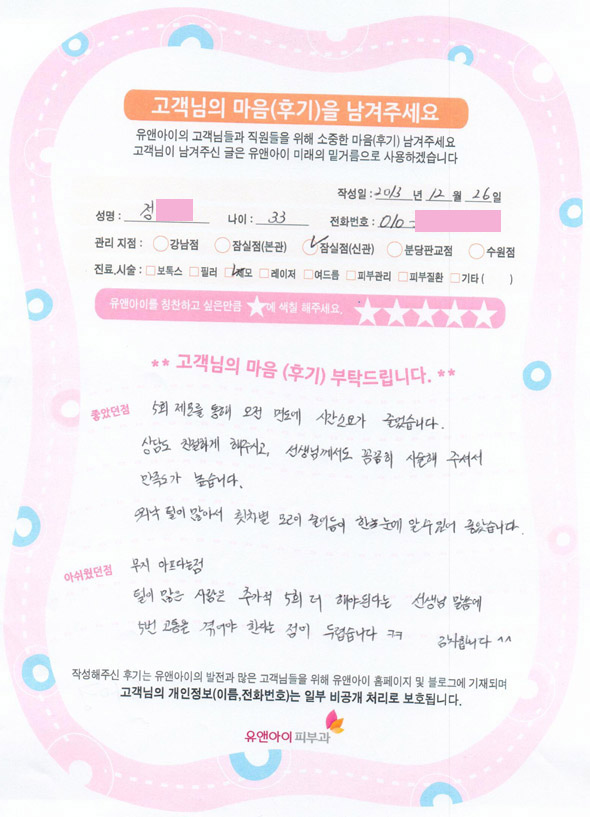 고객님의 마음(후기)을 남겨주세요
유앤아이의 고객님들과 직원들을 위해 소중한 마음(후기) 남겨주세요
고객님이 남겨주신 글은 유앤아이 미래의 밑거름으로 사용하겠습니다
작성일 : 2013 년 12 월 26 일
성명 : 정 나이 : 33 전화번호 : 010 -
관리 지점 : 강남점 잠실점(본관) 잠실점(신관) 분당판교점 수원점
진료,시술 : 보톡스 필러 제모 레이저 여드름 피부관리 피부질환 기타 ( )
유앤아이를 칭찬하고 싶은만큼 ★에 색칠 해주세요. ★★★★★
** 고객님의 마음 (후기) 부탁드립니다. **
좋았던점 5회 제모를 통해 오전 면도에 시간소요가 줄었습니다.
상담도 친절하게 해주시고, 선생님께서도 꼼꼼히 시술해 주셔서
만족도가 높습니다.
워낙 털이 많아서 횟차별 모근이 줄어듦이 한눈에 알 수 있어 좋았습니다.
아쉬웠던점 무지 아프다는점
털이 많은 사람은 추가적 5회 더 해야된다는 선생님 말씀에
5번 고통을 겪어야 한다는 점이 두렵습니다 ㅋㅋ 감사합니다 ^^
작성해주신 후기는 유앤아이의 발전과 많은 고객님들을 위해 유앤아이 홈페이지 및 블로그에 기재되며
고객님의 개인정보(이름,전화번호)는 일부 비공개 처리로 보호됩니다.
유앤아이피부과